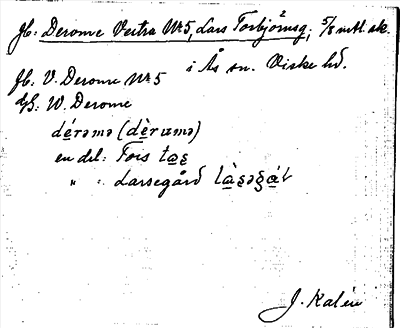 Jb: Derome Vestra No 5, Lars Torbjörnsg; 5/8 mtl. sk.
i Ås sn. Viske hd.
Jb: V. Derome No 5
W. Derome
dérəmə (dèrɯmə)
en del: Tois
" : Larsegård
J. Kalén